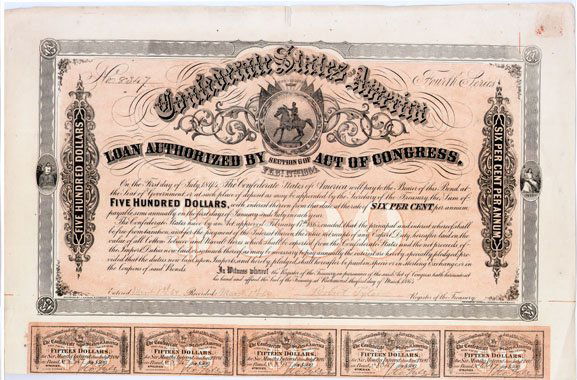 No 8347
Fourth Series
Confederate States America
LOAN AUTHORIZED BY SECTION 6 OF ACT OF CONGRESS,
FEB. 17TH 1864
FIVE HUNDRED DOLLARS
SIX PER CENT PER ANNUM
On the First day of July 1894, The Confederate States of America will pay to the Bearer of this Bond at
the Seat of Government, or at such place of deposit as may be appointed by the Secretary of the Treasury, the Sum of
FIVE HUNDRED DOLLARS, with interest thereon from this date at SIX PER CENT per annum
payable semi annually on the first days of January and July in each year.
The Confederate States have by an Act approved February 17th 1864 enacted that the principal and interest whereof shall
be free from taxation, and for the payment of interest thereon the
value of all Cotton Tobacco and Naval Stores which shall be exported from the Confederate States and the net proceeds of
the Import Duties now laid or so much thereof as may be necessary to pay annually the interest are hereby specially pledged provi-
ded that the duties now laid upon Imports and hereby pledged shall hereafter be paid in specie or in Sterling Exchange or in
the Coupons of said Bonds.
In Witness whereof, the Register of the Treasury in pursuance of the said Act of Congress hath hereunto set
his hand and affixed the Seal of the Treasury at Richmond this first day of March 1864
Entered Recorded Register of the Treasury
The Confederate States of America
FIFTEEN DOLLARS
for Six Months Interest due
on Bond
The Confederate States of America
FIFTEEN DOLLARS
for Six Months Interest due
on Bond
The Confederate States of America
FIFTEEN DOLLARS
for Six Months Interest due
on Bond
The Confederate States of America
FIFTEEN DOLLARS
for Six Months Interest due
on Bond
The Confederate States of America
FIFTEEN DOLLARS
for Six Months Interest due
on Bond